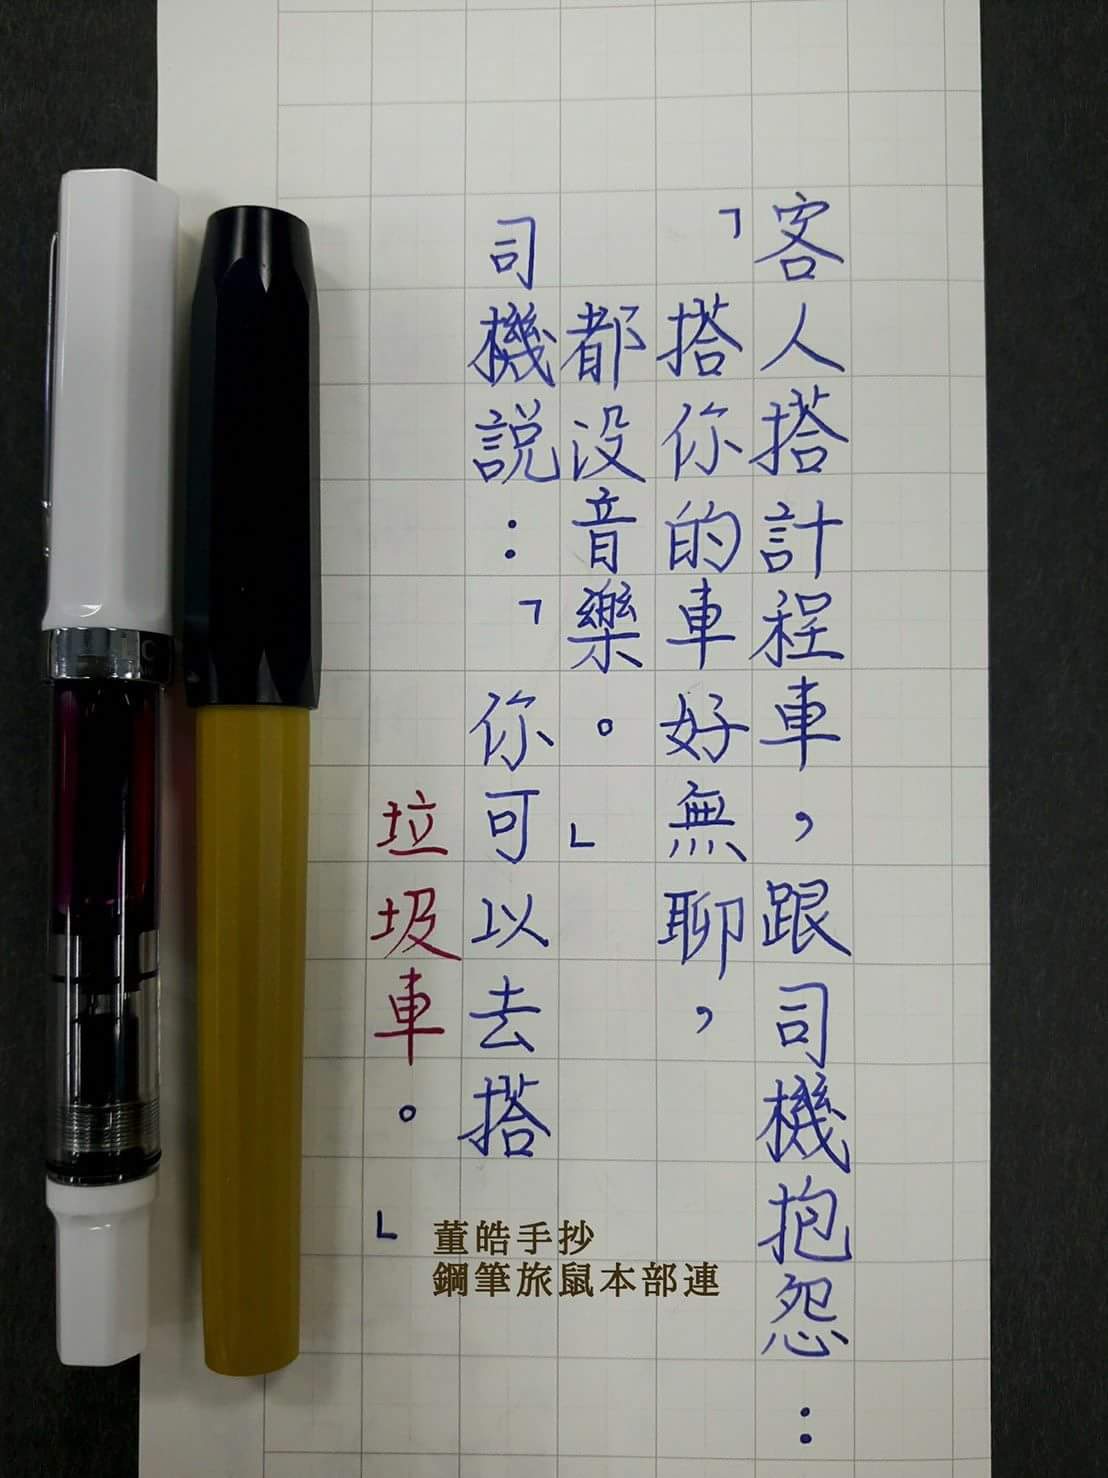 客人搭計程車，跟司機抱怨：
「搭你的車好無聊，
都沒音樂。」
司機說：「你可以去搭
垃圾車。」
董皓手抄
鋼筆旅鼠本部連